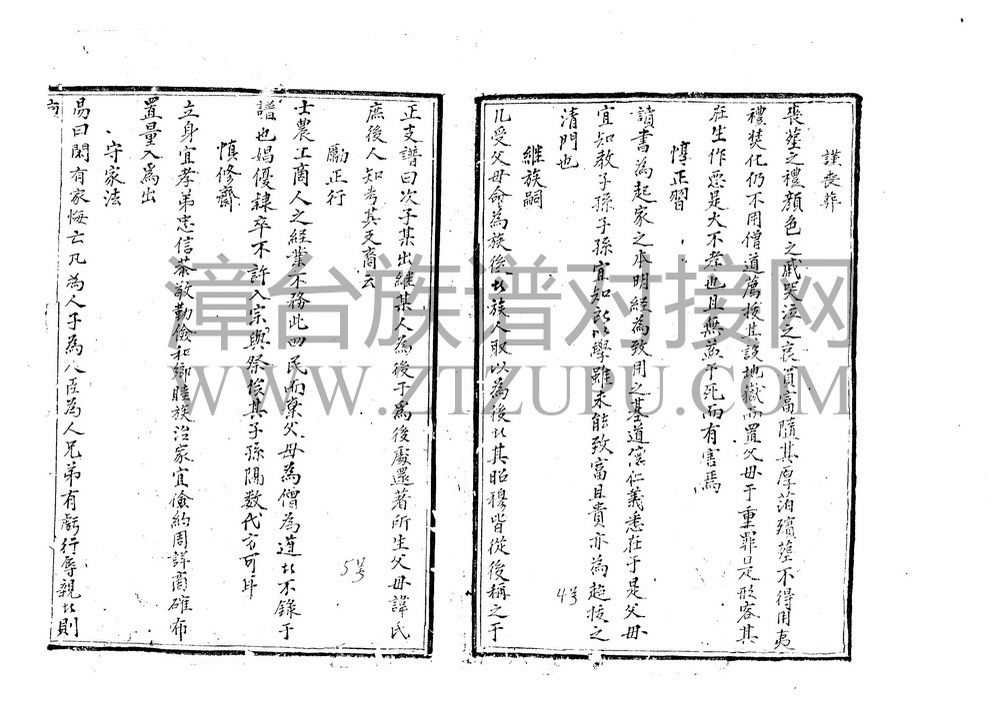 謹喪葬
喪塟之禮顏色之戚哭泣之哀貧富隨其厚薄殯塟不得用夷
禮焚化仍不用僧道薦拔其設地獄而置父母于重罪是形容其
在生作惡是大不孝也且無益于死而有害焉
惇正習
讀書為起家之本明經為致用之基道德仁義悉在于是父母
宜知教子孫子孫宜知所學雖未能致富且貴亦為超拔之
清門也
4号
继族嗣
凡受父母命為族後故族人取以為後故其昭穆皆從後稱之于
正支譜曰次子某出继某人為後于為後處還著所生父母諱氏
庶後人知考其支裔云
5号
勵正行
士農工商人之經業不務此四民而棄父母為僧為道故不錄于
譜也娼優隸卒不許入宗與祭俟其子孫隔数代方可耳
慎修齋
立身宜孝弟忠信恭敬勤儉和鄉睦族治家宜儉約周詳商確布
置量入為出
守家法
易曰閑有家悔亡凡為人子為人臣為人兄弟有虧行辱親故則
漳台族谱对接网
WWW.ZTZUPU.COM